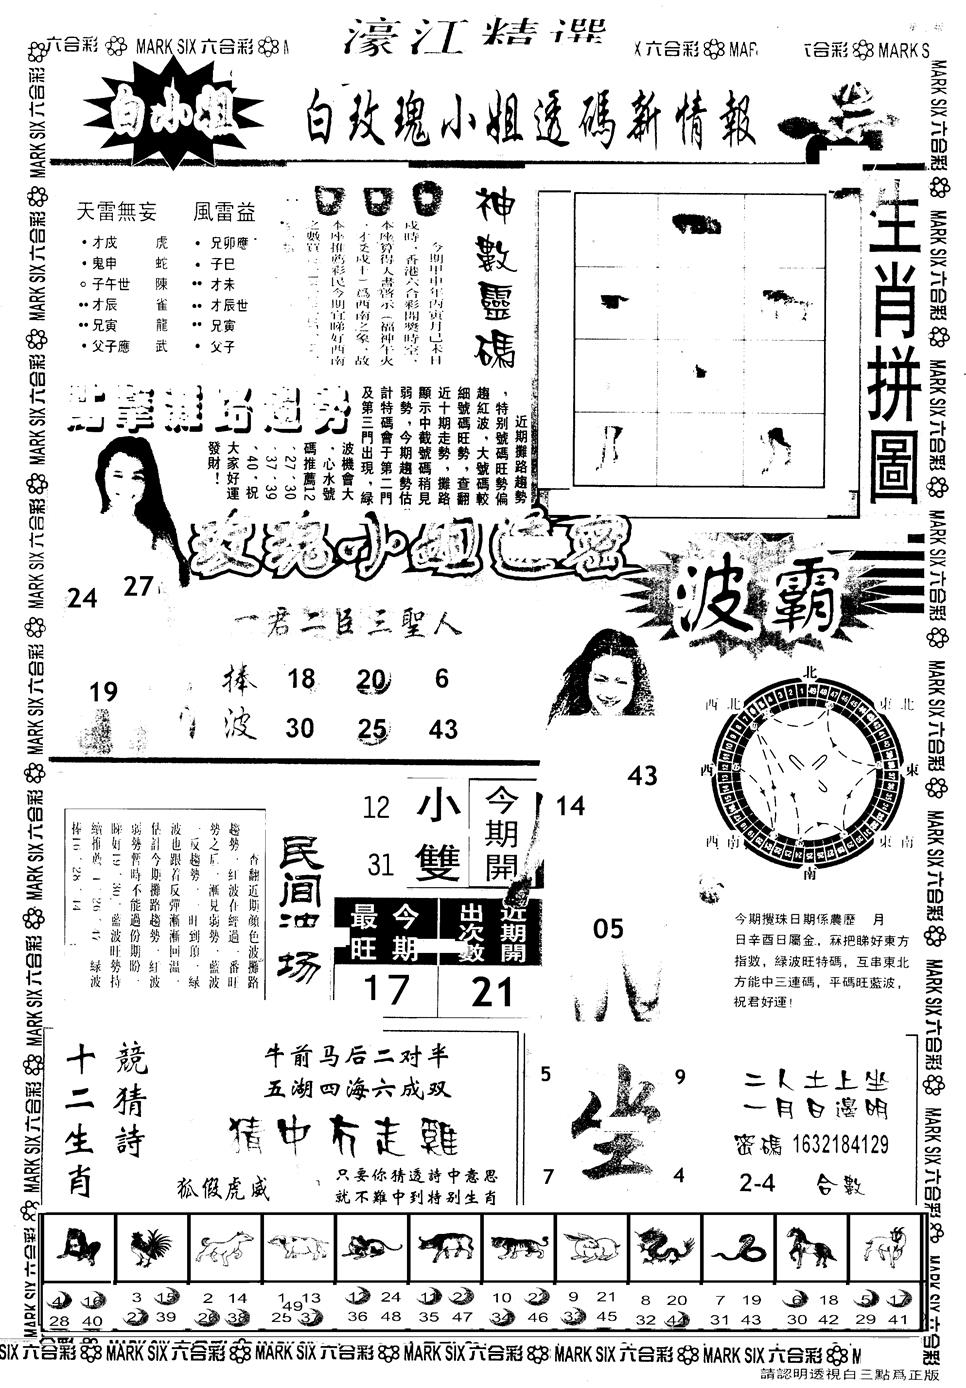 濠江精選
六合彩 MARK SIX 六合彩
六合彩 MARK SIX
白小姐
白玫瑰小姐透碼新情報
天雷無妄
才戌 虎
鬼申 蛇
子午世 陳
才辰 雀
兄寅 龍
父子應 武
風雷益
兄卯應
子巳
才未
才辰世
兄寅
父子
神數靈碼
今期甲申年丙寅月己未日
戌時，香港六合彩開獎時空，
本座算得人書啓示（福神午火
，才爻戌土）爲西南之象，故
本座推薦彩民今期宜睇好西南
生肖拼圖
近期攤路趨勢
，特別號碼旺勢偏
趨紅波，大號碼較
細號碼旺勢，查翻
近十期走勢，攤路
顯示中截號碼稍見
弱勢，今期趨勢估
計特碼會于第二門
及第三門出現，綠
波機會大
，心水號
碼推薦12
、27、30
、37、39
、40，祝
大家好運
發財！
玫瑰小姐透密
24
27
19
一君二臣三聖人
捧 18 20 6
波 30 25 43
波霸
43
14
05
北
東北
東
東南
南
西南
西
西北
今期攪珠日期係農歷 月
日辛酉日屬金，冧把睇好東方
指數，綠波旺特碼，互串東北
方能中三連碼，平碼旺藍波，
祝君好運！
香翻近斯顔色波攤路
趨勢，紅波在經過一番旺
勢之后，漸見弱勢，藍波
一反趨勢，一旺到頂，綠
波也跟着反彈漸漸回温，
估計今期攤路趨勢，紅波
弱勢暫時不能過份期盼，
睇好19、30，藍波旺勢持
民间波场
12 小
31 雙
今期開
最旺 今期
17
出次數 近期開
21
競猜詩
十二生肖
牛前马后二对半
五湖四海六成双
猜中有走雞
狐假虎威
只要你猜透詩中意思
就不難中到特别生肖
5
9
坐
7
4
二人土上坐
一月日邊明
密碼 1632184129
2-4 合數
4 16 28 40
3 15 27 39
2 14 26 38
1 13 49 25 37
12 24 36 48
11 23 35 47
10 22 34 46
9 21 33 45
8 20 32 44
7 19 31 43
6 18 30 42
5 17 29 41
六合彩 MARK SIX 六合彩 MARK SIX 六合彩 MARK SIX 六合彩 MARK SIX 六合彩 MARK SIX 六合彩
請認明透視白三點爲正版